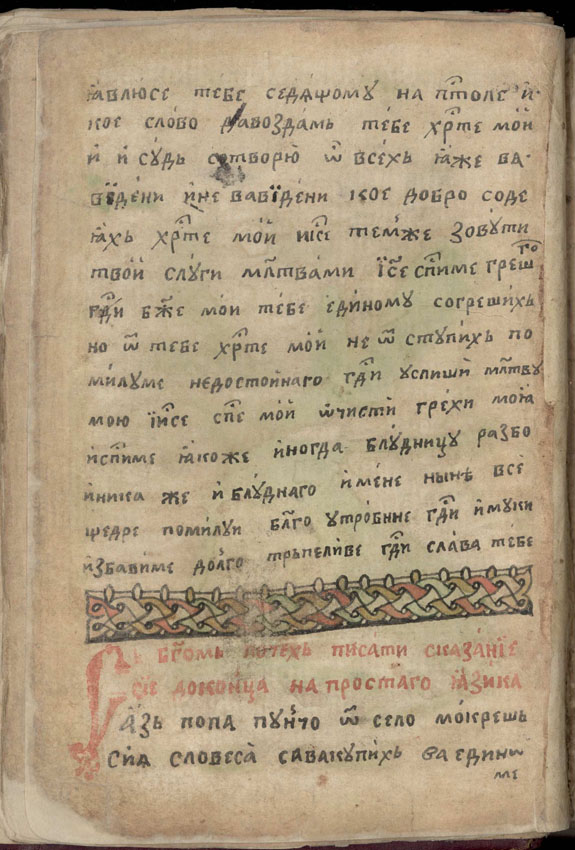 ꙗвлюсе тебе седѧщому на пⷭ҇толе й-
кое слово равоздамь тебе хрⷭ҇те мой
й и сꙋдь сотворю ѿ всехь ꙗже ва-
вїдени ине вавїдени кое добро соде
ꙗхь хрⷭ҇те мой іи҃се темже зовꙋти
твой слꙋги млⷮтвами їсе сп҃име греш го
гдⷭ҇и бже мои тебе единомꙋ согрешихь
но ѿ тебе хрⷭ҇те мой не ѿстꙋпихь по
милꙋме недостойнаго гдⷭ҇и ꙋслиший млⷮтвꙋ
мою їи҃се сп҃е мой ѡчисти грехи моꙗ
исп҃име ꙗкоже иногда блꙋдницꙋ разбо
йника же и блꙋднаго имене нынѣ все
щедре помилꙋи бл҃го ꙋтробнне гдⷭ҇и имꙋки
избавиме долго трьпеливе гдⷭ҇и слава тебе
Сь бг҃омь потехь писати сказанїе
сїе доконца на простаго ꙗзика
Азь попа пꙋнчо ѿ село мокрешь
Сиѧ словеса савакꙋпихь ѳа единѡ
ме